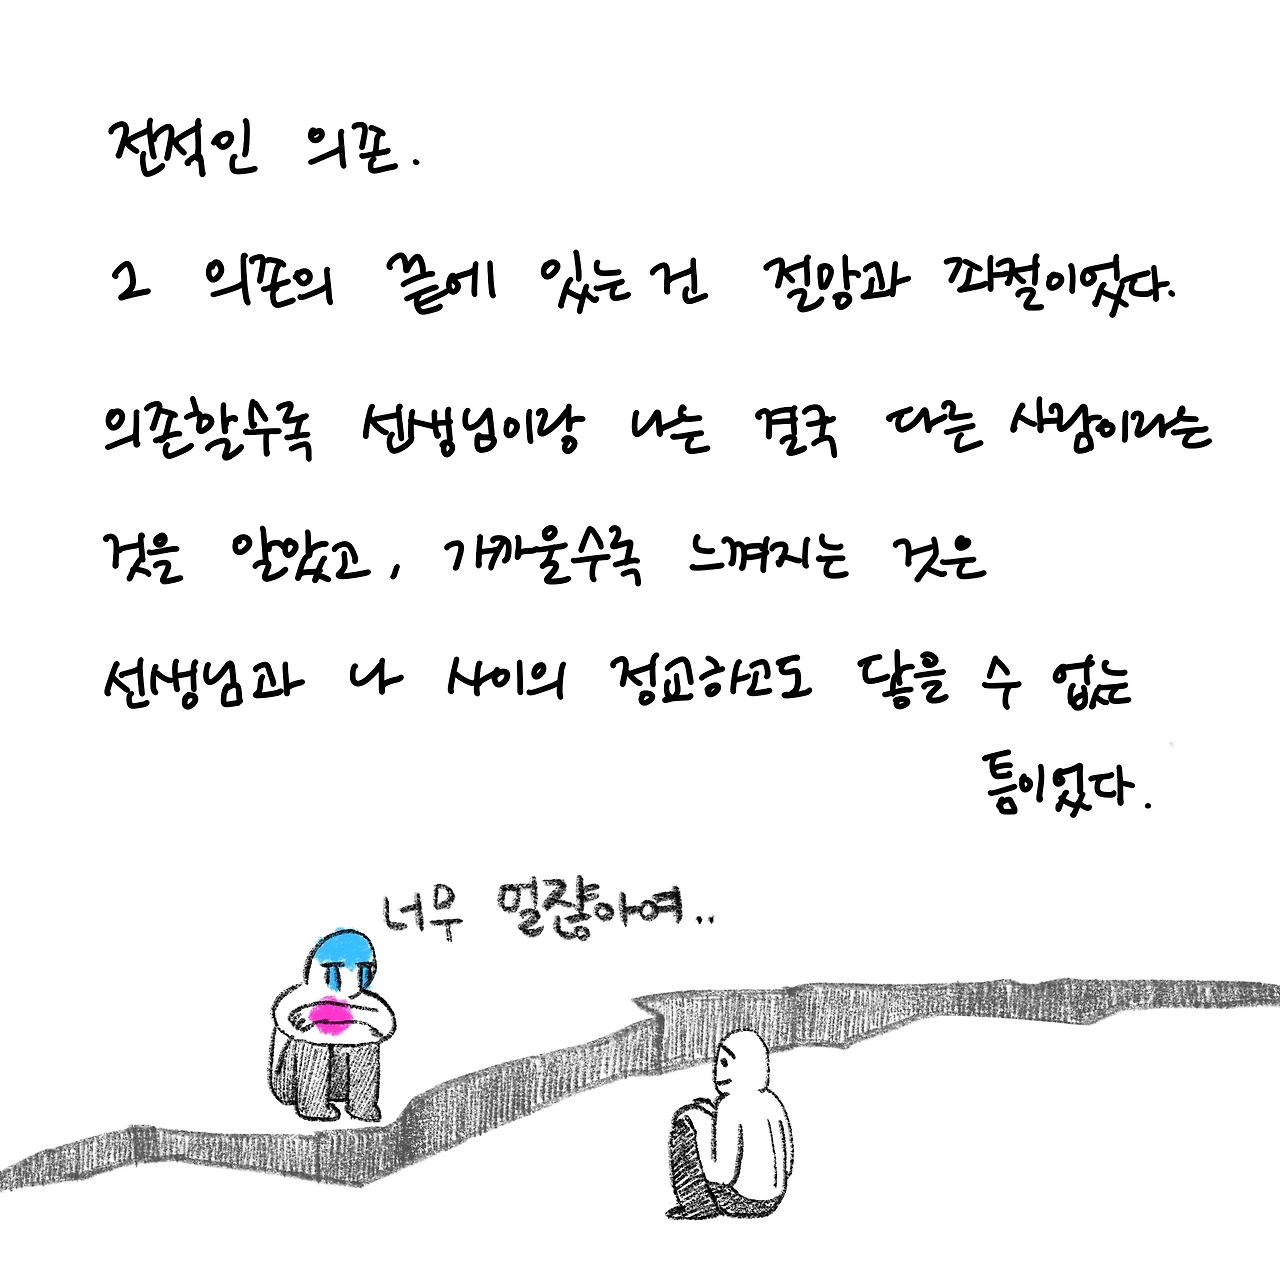 전적인 의존.
그 의존의 끝에 있는 건 절망과 좌절이었다.
의존할수록 선생님이랑 나는 결국 다른 사람이라는
것을 알았고, 가까울수록 느껴지는 것은
선생님과 나 사이의 정교하고도 닿을 수 없는
틈이었다.
너무 멀쟎아여..